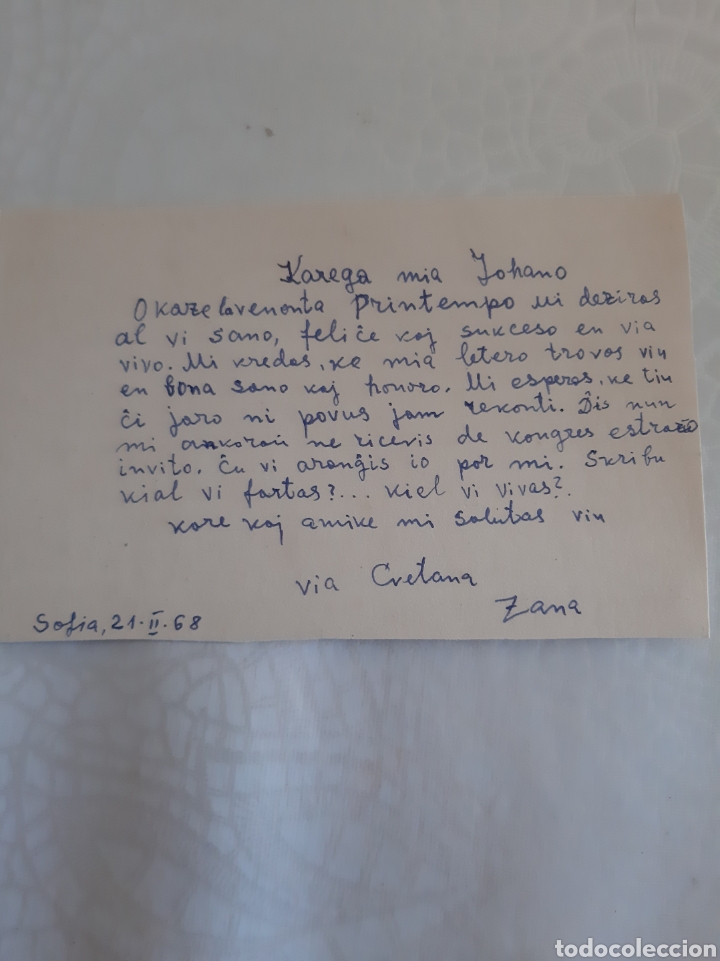 Karega mia Johano
Okaze la venonta Printempo mi deziras
al vi sano, feliĉe kaj sukceso en via
vivo. Mi kredas, ke mia letero trovos vin
en bona sano kaj honoro. Mi esperas, ke tiu
ĉi jaro ni povus jam rekonti. Ĝis nun
mi ankoraŭ ne ricevis de kongres estraro
invito. Ĉu vi aranĝis io por mi. Skribu
kial vi fartas?... kiel vi vivas?.
kore kaj amike mi salutas vin
via Cvetana
Zana
Sofia, 21.II.68
todocoleccion